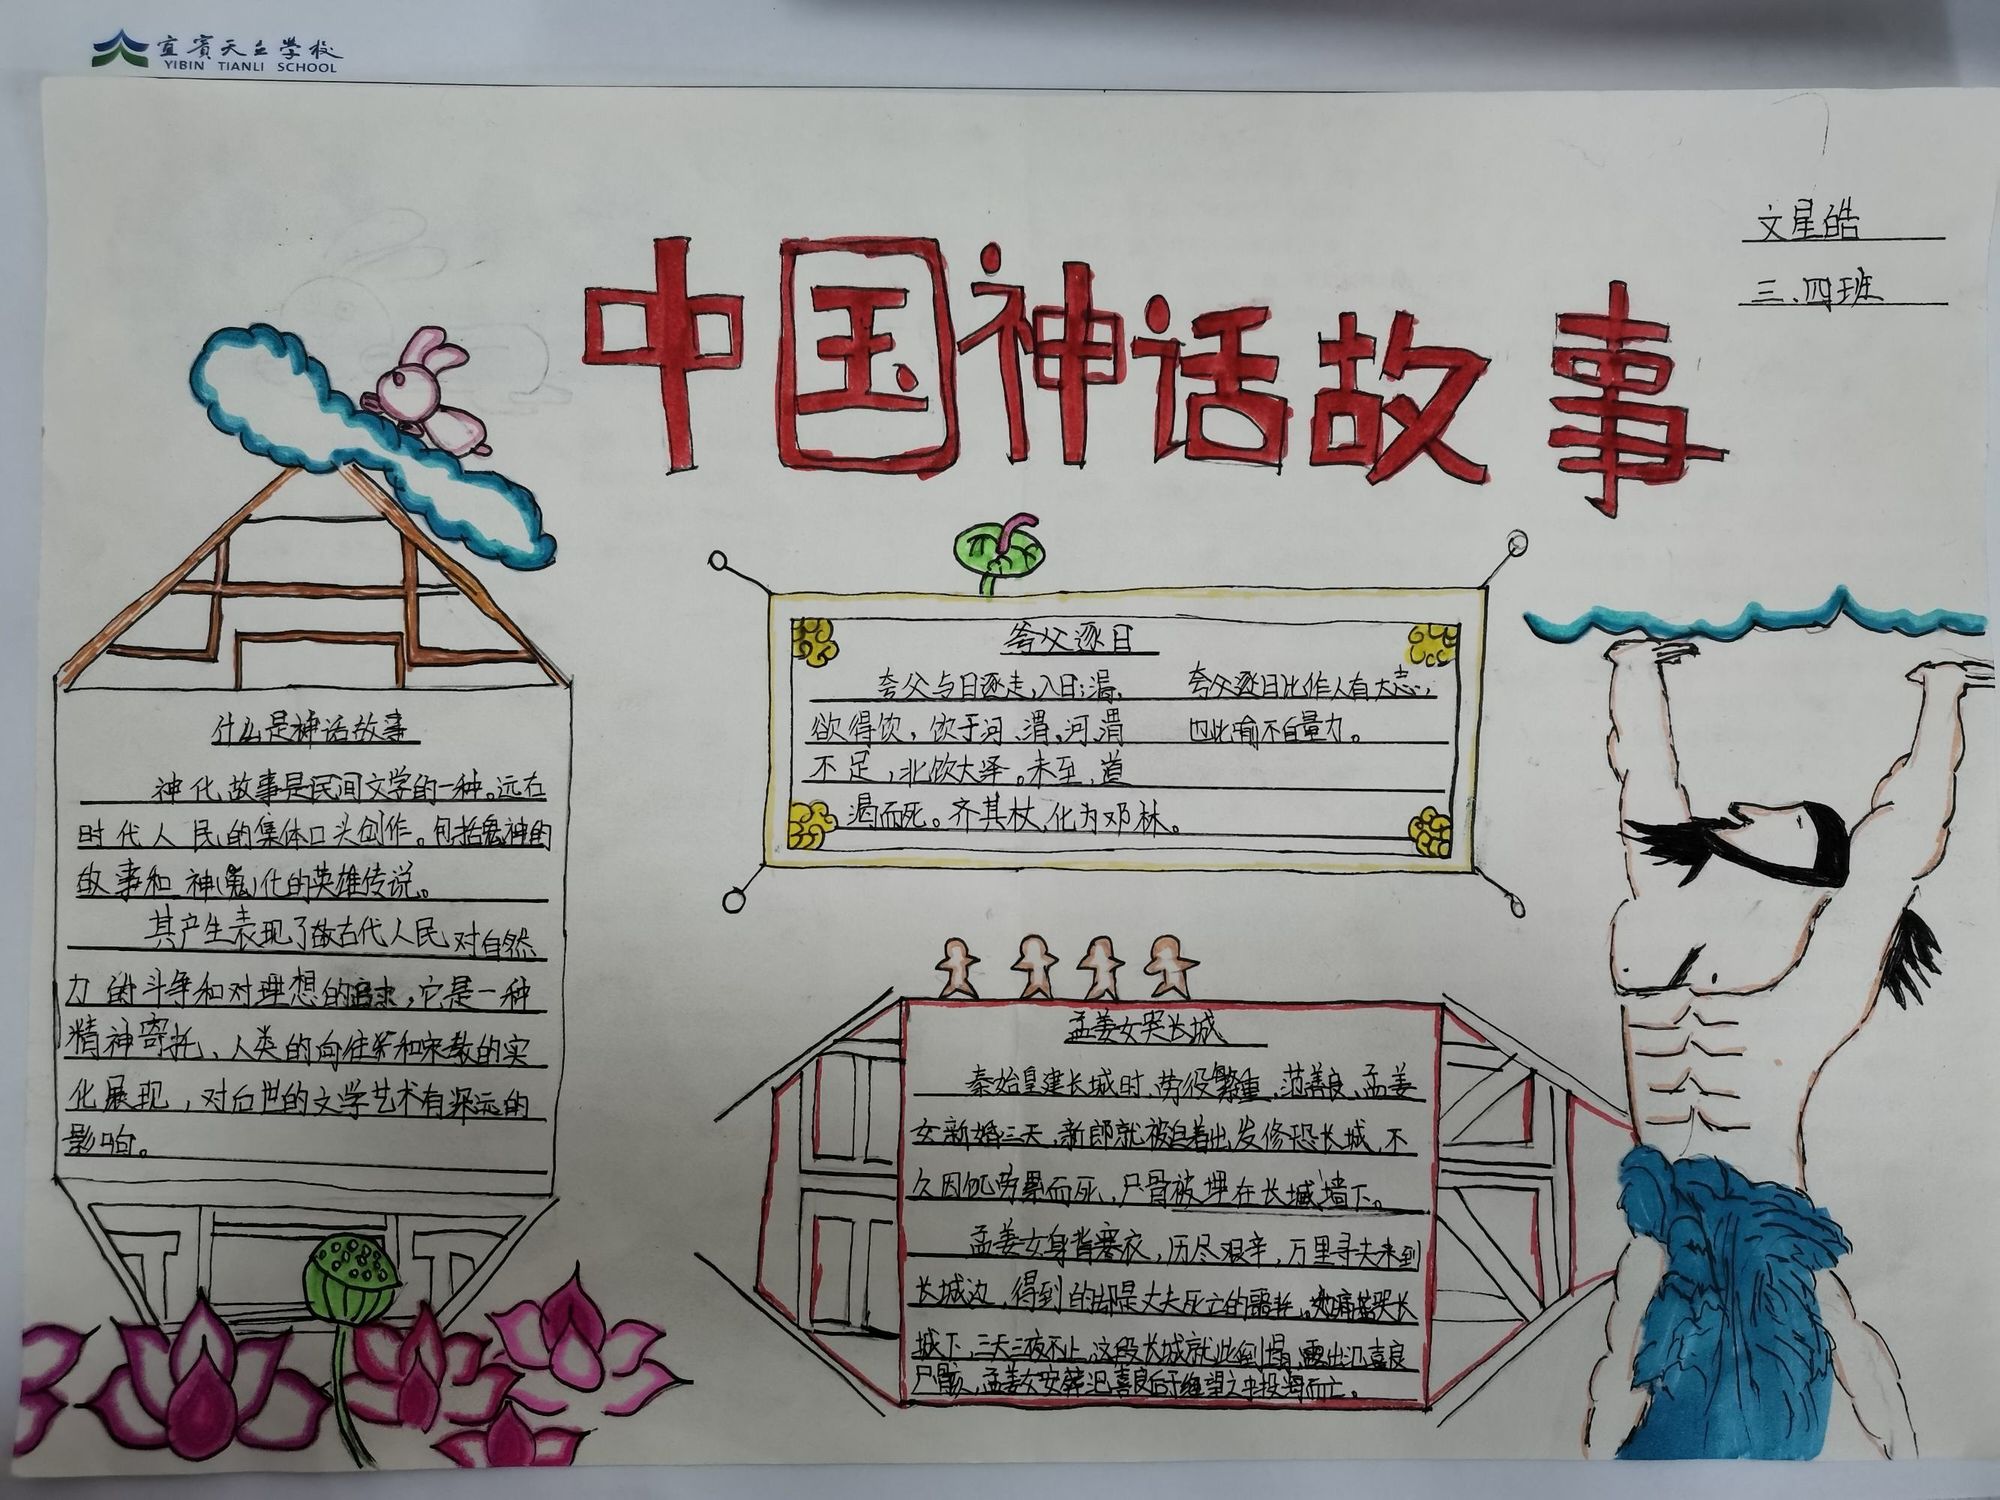 宜宾天立学校
YIBIN TIANLI SCHOOL
文星皓
三.四班
中国神话故事
什么是神话故事
神化故事是民间文学的一种。远在
时代人民的集体口头创作。包括鬼神的
故事和神(鬼)化的英雄传说。
其产生表现了古代人民对自然
力的斗争和对理想的追求,它是一种
精神寄托、人类的向往和宗教的实
化展现,对后世的文学艺术有深远的
影响。
夸父逐日
夸父与日逐走,入日;渴,
欲得饮,饮于河、渭,河、渭
不足,北饮大泽。未至,道
渴而死。齐其杖,化为邓林。
夸父逐日比作人有大志,
也比喻不自量力。
孟姜女哭长城
秦始皇建长城时,劳役繁重,范喜良、孟姜
女新婚三天,新郎就被迫着出发修长城,不
久因饥劳累而死,尸骨被埋在长城墙下。
孟姜女身背寒衣,历尽艰辛,万里寻夫来到
长城边,得到的却是丈夫死亡的噩耗。她痛苦哭长
城下,三天三夜不止,这段长城就此倒塌,露出范喜良
尸骸,孟姜女安葬范喜良后于绝望之中投海而亡。